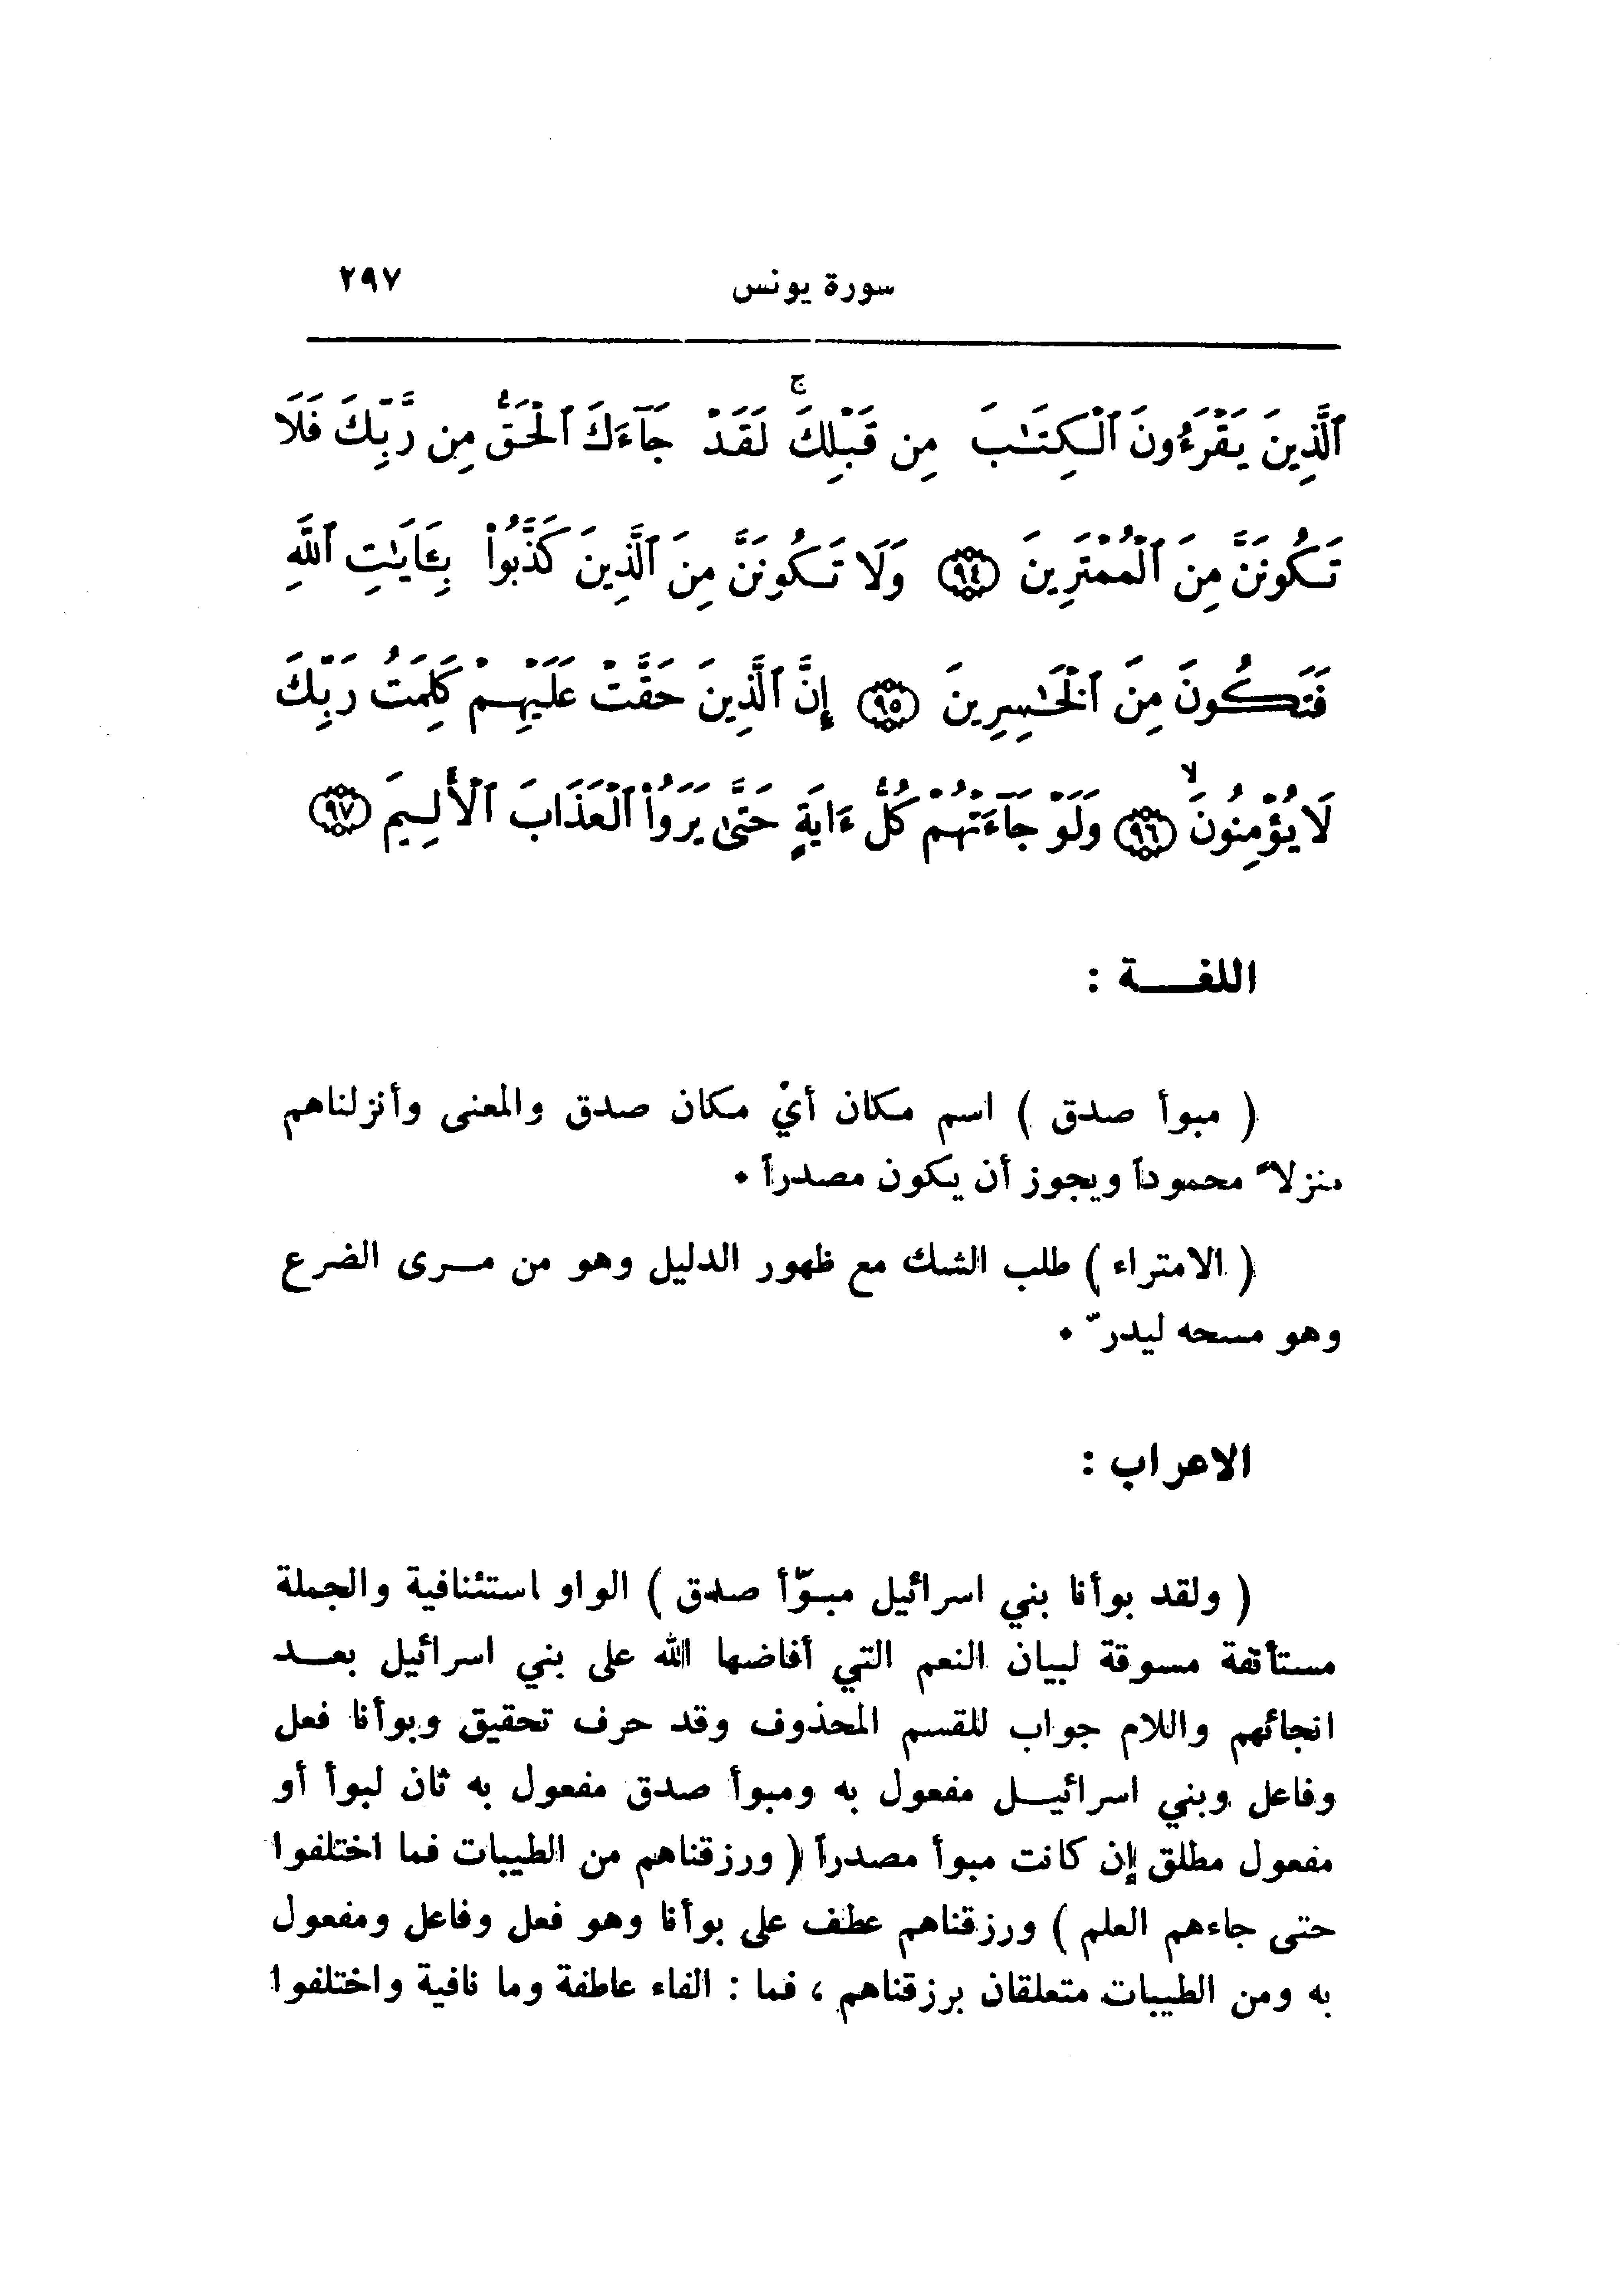 سورة يونس ٢٩٧
ٱلَّذِينَ يَقْرَءُونَ ٱلْكِتَٰبَ مِن قَبْلِكَ ۚ لَقَدْ جَآءَكَ ٱلْحَقُّ مِن رَّبِّكَ فَلَا
تَكُونَنَّ مِنَ ٱلْمُمْتَرِينَ ٩٤ وَلَا تَكُونَنَّ مِنَ ٱلَّذِينَ كَذَّبُوا۟ بِـَٔايَٰتِ ٱللَّهِ
فَتَكُونَ مِنَ ٱلْخَٰسِرِينَ ٩٥ إِنَّ ٱلَّذِينَ حَقَّتْ عَلَيْهِمْ كَلِمَتُ رَبِّكَ
لَا يُؤْمِنُونَ ۙ ٩٦ وَلَوْ جَآءَتْهُمْ كُلُّ ءَايَةٍ حَتَّىٰ يَرَوُا۟ ٱلْعَذَابَ ٱلْأَلِيمَ ٩٧
اللغـــة :
( مبوأ صدق ) اسم مكان أيْ مكان صدق والمعنى وأنزلناهم
منزلاً محموداً ويجوز أن يكون مصدراً ٠
( الامتراء ) طلب الشك مع ظهور الدليل وهو من مـرى الضرع
وهو مسحه ليدرّ ٠
الاعراب :
( ولقد بوأنا بني اسرائيل مبوّأ صدق ) الواو استئنافية والجملة
مستأنفة مسوقة لبيان النعم التي أفاضها الله على بني اسرائيل بعـد
انجائهم واللام جواب للقسم المحذوف وقد حرف تحقيق وبوأنا فعل
وفاعل وبني اسرائيـل مفعول به ومبوأ صدق مفعول به ثان لبوأ أو
مفعول مطلق إن كانت مبوأ مصدراً ( ورزقناهم من الطيبات فما اختلفوا
حتى جاءهم العلم ) ورزقناهم عطف على بوأنا وهو فعل وفاعل ومفعول
به ومن الطيبات متعلقان برزقناهم ، فما : الفاء عاطفة وما نافية واختلفوا